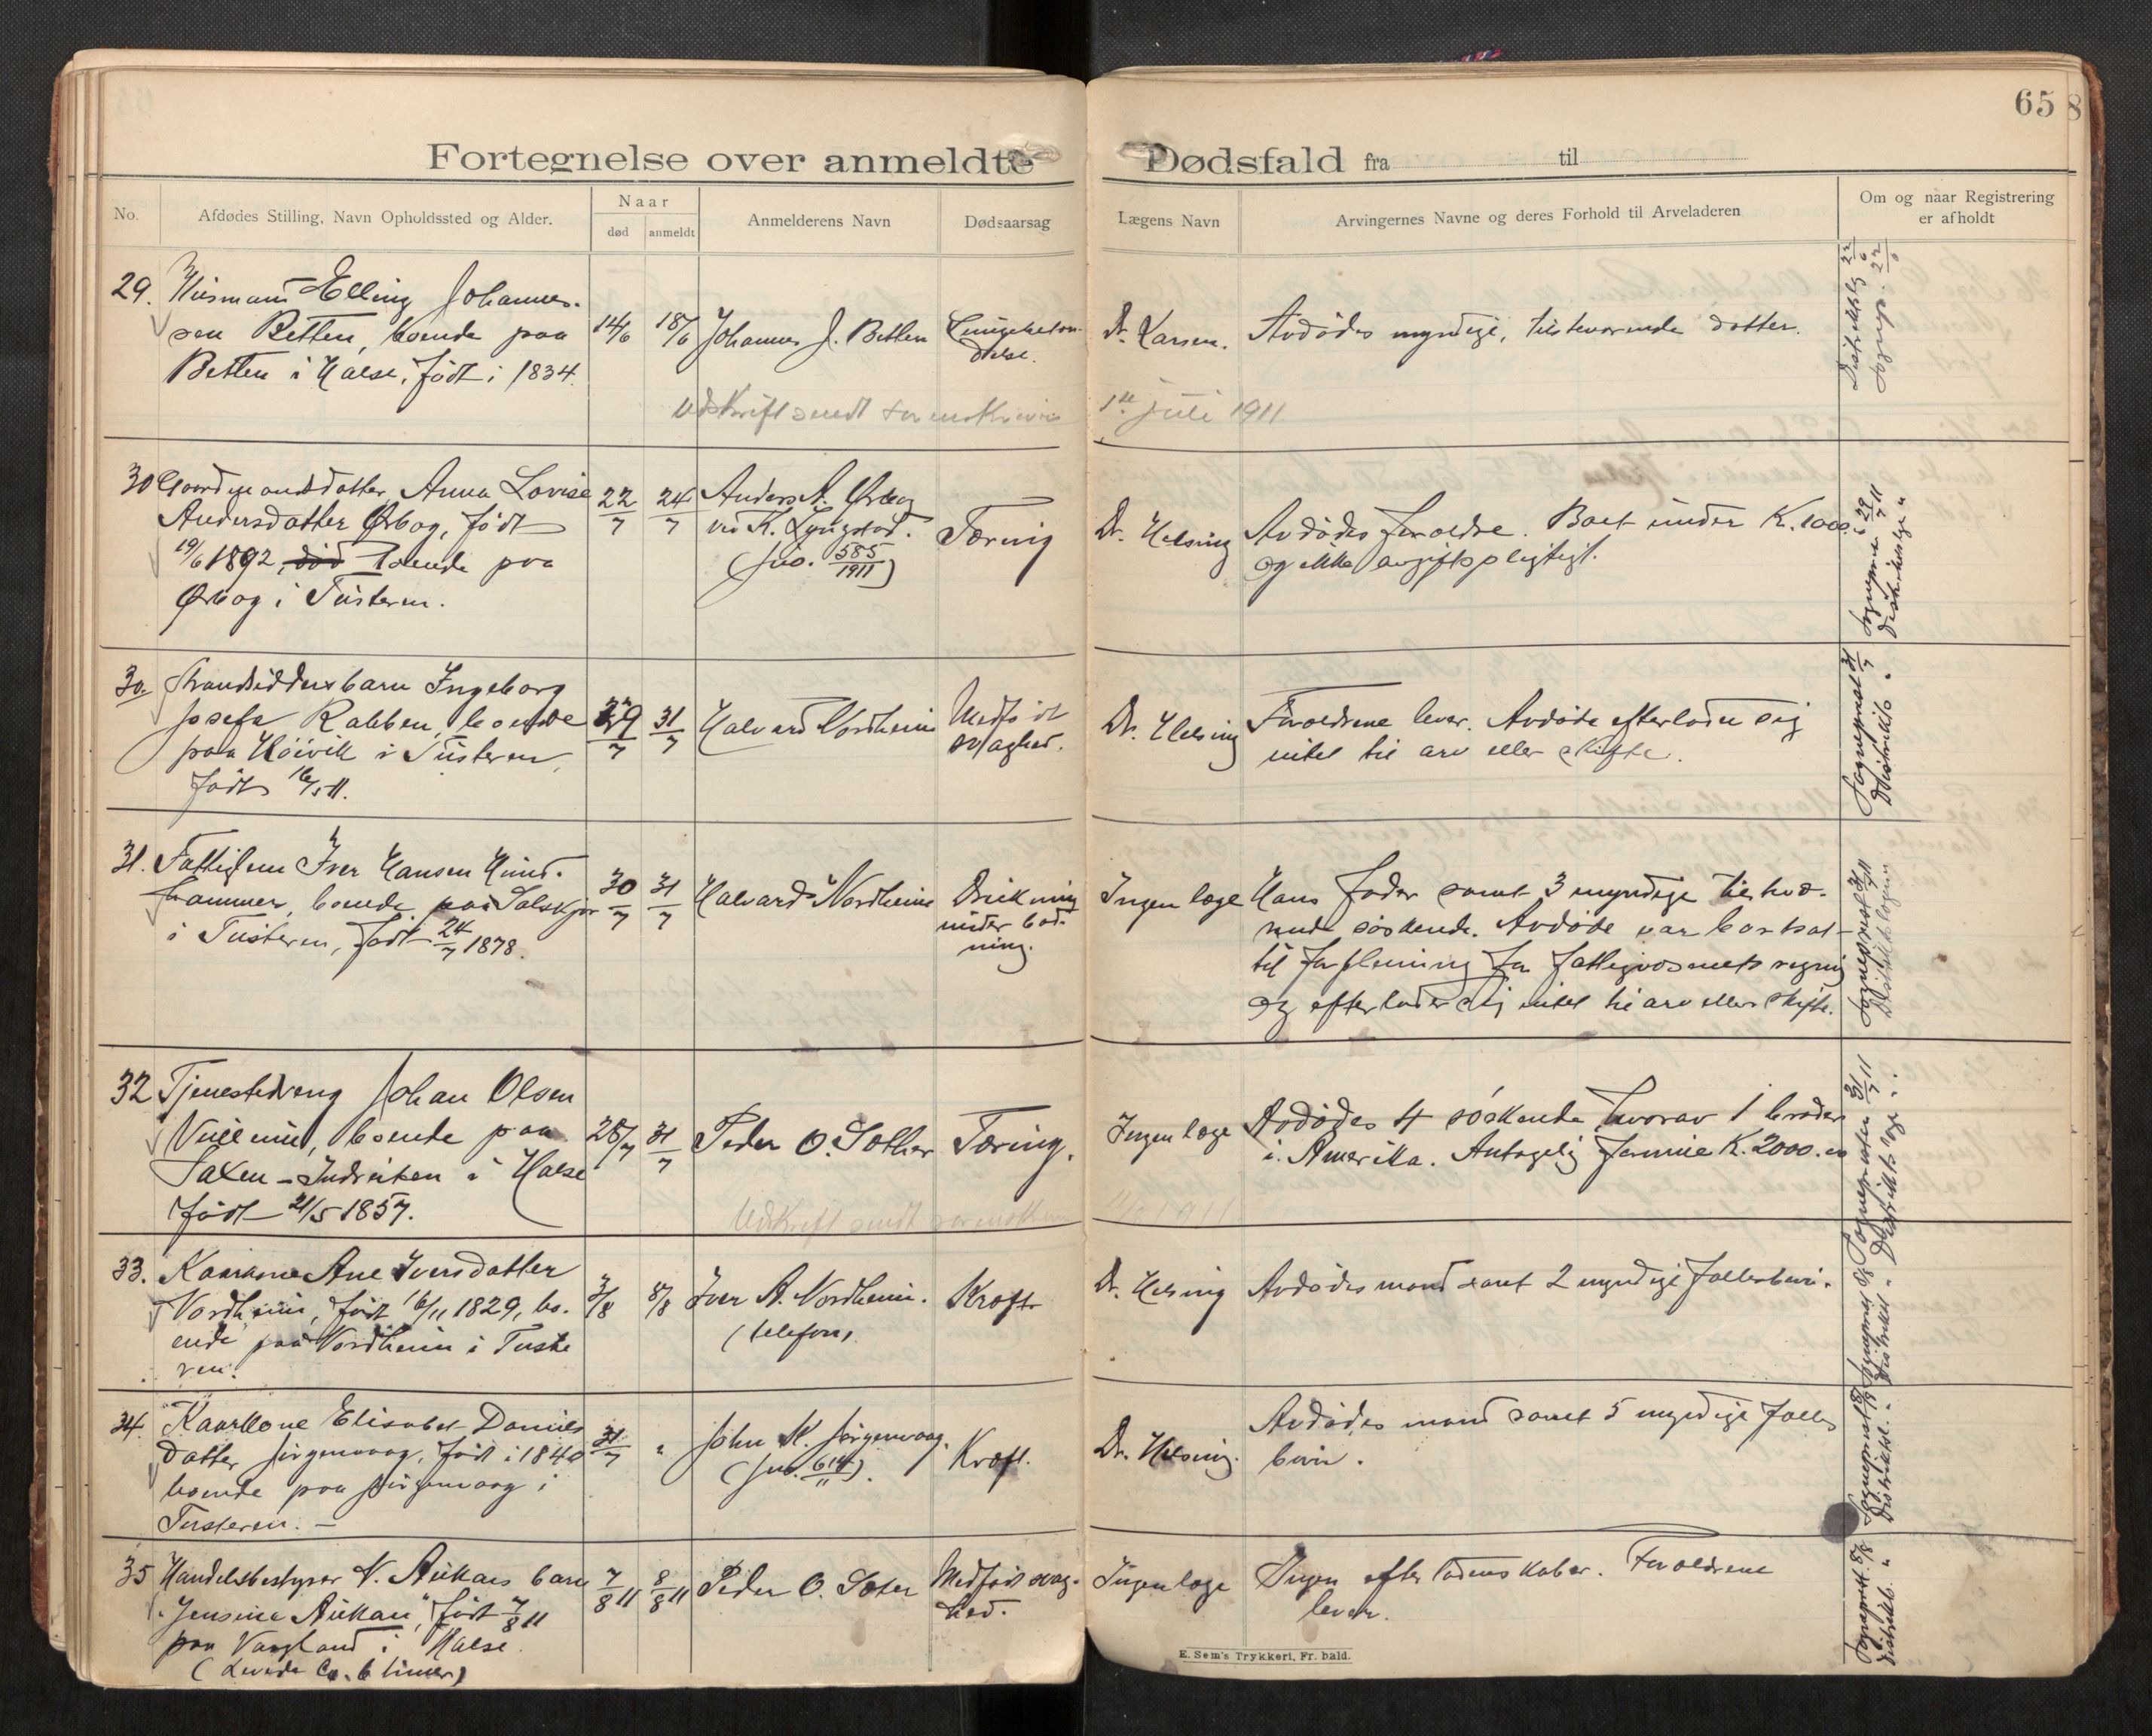 65
Fortegnelse over anmeldte Dødsfald fra til
No.
Afdødes Stilling, Navn Opholdssted og Alder.
Naar
død
anmeldt
Anmelderens Navn
Dødsaarsag
Lægens Navn
Arvingernes Navne og deres Forhold til Arveladeren
Om og naar Registrering
er afholdt
29. Husmand Elling Johannes-
søn Betten, boende paa
Betten i Halse, født i 1834.
14/6
18/6
Johannes J. Betten
Lungebetæn-
delse.
Dr. Larsen.
Avdødes myndige, tilsteværende datter.
Udskrift sendt sorenskriveren 1ste juli 1911
30 Gaardmandsdatter Anna Lovise
Andersdatter Ørbog, født
19/6 1892, død boende paa
Ørbog i Tusteren.
22/7
24/7
Anders A. Ørbog
ved K. Lyngstad.
(jno. 585/1911)
Tæring
Dr. Helsing
Avdødes forældre. Boet under K. 1000.
og ikke avgiftspligtigt.
30. Strandsidderbarn Ingeborg
Josefa Rabben, boende
paa Höivik i Tusteren,
født 16/5 11.
29/7
31/7
Halvard Nordheim
Medfødt
svaghed.
Dr. Helsing
Forældrene lever. Avdøde efterlader sig
intet til arv eller skifte.
31. Fattiglem Iver Hansen Hund-
hammer, boende paa Solskjør
i Tusteren, født 24/7 1878.
30/7
31/7
Halvard Nordheim
Drukning
under bad-
ning.
Ingen læge
Hans fader samt 3 myndige tilstedvæ-
rende søskende. Avdøde var bortsat
til forpleining for fattigvæsenets regning
og efterlader sig intet til arv eller skifte.
32 Tjenestedreng Johan Olsen
boende paa
i Halse
født 21/5 1857.
28/7
31/7
Peder O. Sæther
Tæring.
Ingen læge
Avdødes 4 söskende, hvorav 1 broder
i Amerika. Antagelig formue K. 2000.00
Udskrift sendt sorenskriveren 1911
33. Kaarkone Ane Iversdatter
Nordheim, født 16/11 1829, bo-
ende paa Nordheim i Tuste
ren.
3/8
8/8
Iver A. Nordheim.
(telefon)
Kræft
Dr. Helsing
Avdødes mand samt 2 myndige fællesbørn.
34. Kaarkone Elisabet Daniels
datter Jørgenvaag, født i 1840
boende paa Jørgenvaag i
Tusteren. —
31/7
"
John K. Jørgenvaag.
(jno. 614/11).
Kræft.
Dr. Helsing.
Avdødes mand samt 5 myndige fælles
børn.
35 Handelsbestyrer N. Aukans barn
"Jensine Aukan", født 7/8 11
paa Vaagland i Halse.
(Levede ca. 6 timer)
7/8 11
8/8 11
Peder O. Sæter
Medfødt svag-
hed.
Ingen læge
Ingen efterladenskaber. Forældrene
lever.
E. Sem's Trykkeri, Fr.hald.